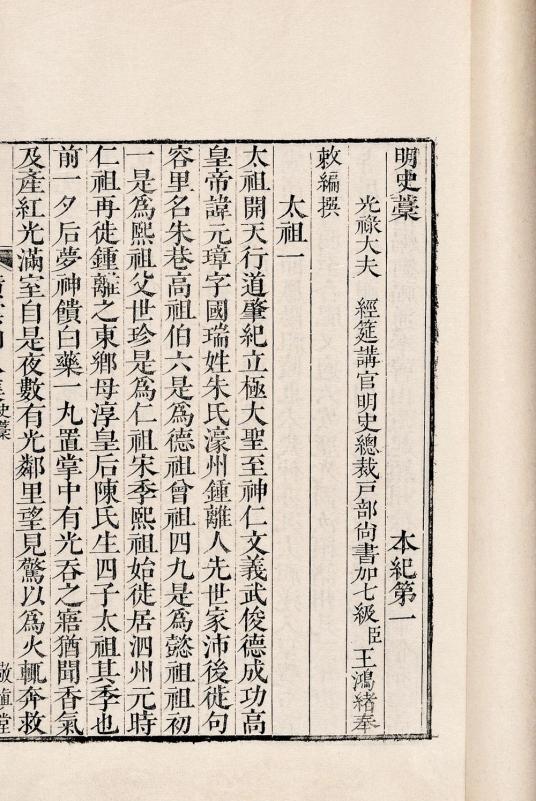 明史藁 本紀第一
光祿大夫 經筵講官明史總裁戸部尙書加七級臣王鴻緖奉
敕編撰
太祖一
太祖開天行道肇紀立極大聖至神仁文義武俊德成功高
皇帝諱元璋字國瑞姓朱氏濠州鍾離人先世家沛後徙句
容里名朱巷高祖伯六是爲德祖曾祖四九是爲懿祖祖初
一是爲熙祖父世珍是爲仁祖宋季熙祖始徙居泗州元時
仁祖再徙鍾離之東鄉母淳皇后陳氏生四子太祖其季也
前一夕后夢神饋白藥一丸置掌中有光吞之寤猶聞香氣
及產紅光滿室自是夜數有光鄰里望見驚以爲火輒奔救
史藁
敬愼堂